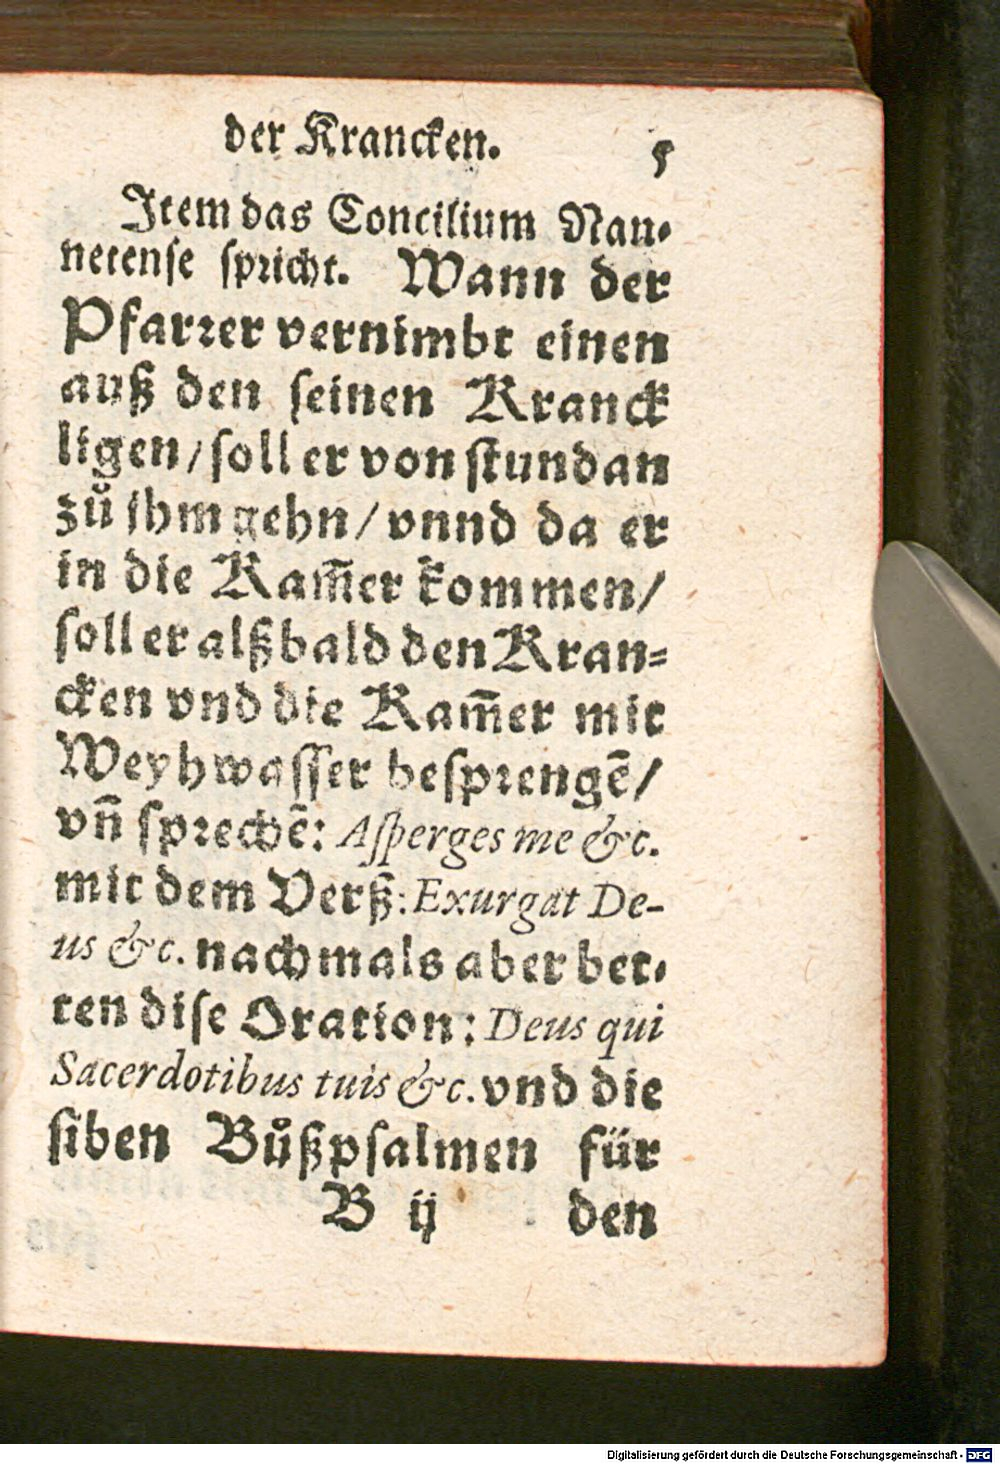 der Krancken. 5
Item das Concilium Nan-
netense spricht. Wann der
Pfarrer vernimbt einen
auß den seinen Kranck
ligen/ soll er von stund an
zů ihm gehn/ vnnd da er
in die Kam̃er kommen/
soll er alßbald den Kran-
cken vnd die Kam̃er mit
Weyhwasser besprengẽ/
vñ sprechẽ: Asperges me &c.
mit dem Verß: Exurgat De-
us &c. nachmals aber bet-
ten dise Oration: Deus qui
Sacerdotibus tuis &c. vnd die
siben Bůßpsalmen für
B ij den
Digitalisierung gefördert durch die Deutsche Forschungsgemeinschaft - DFG